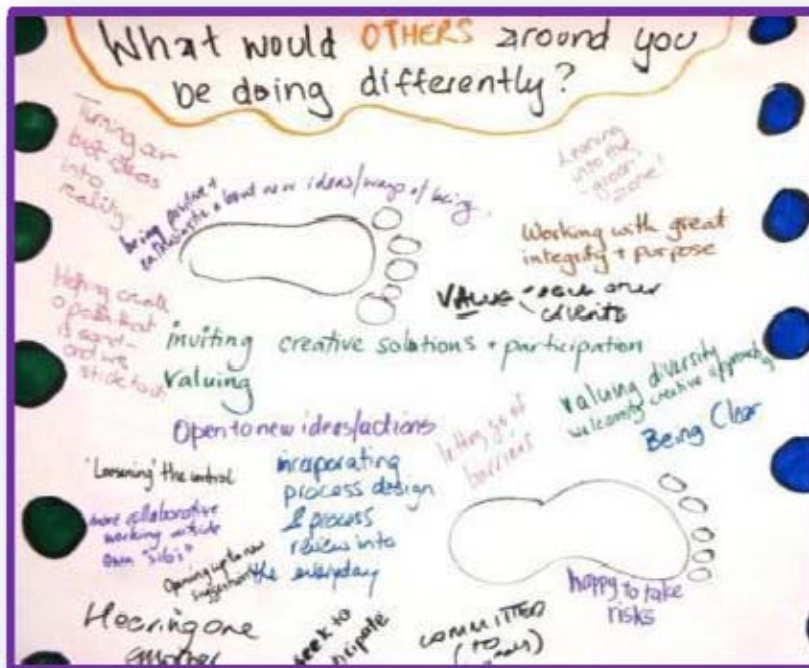 What would OTHERS around you
be doing differently?
Turning our
best ideas
into
reality
being positive +
enthusiastic about new ideas/ways of being
Leaning
into the
groan
zone!
Working with great
integrity + purpose
VALUE - each other
- clients
Helping create
a path that
is good
and we
stick to it
inviting creative solutions + participation
valuing
valuing diversity
creative
Being Clear
Open to new ideas/actions
letting go of
barriers
"Loosening" the control
incorporating
process design
& process
review into
the everyday
more collaborative
working outside
own "silo's"
Opening up to new
suggestions
happy to take
risks
Hearing one
another
seek to
participate
COMMITTED
(to